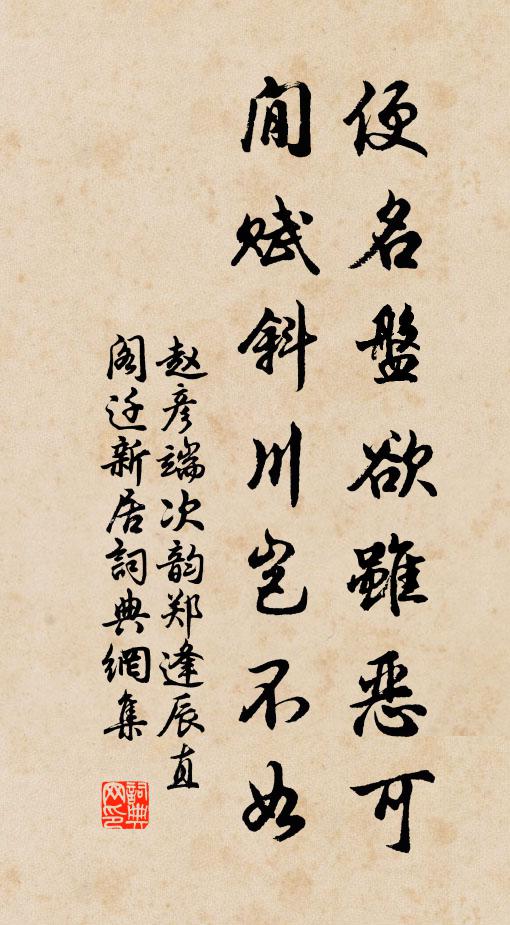 便名盤欲雖惡可
閒賦斜川豈不如
赵彦端次韵郑逢辰直
阁迁新居詞典網集
詞典网印